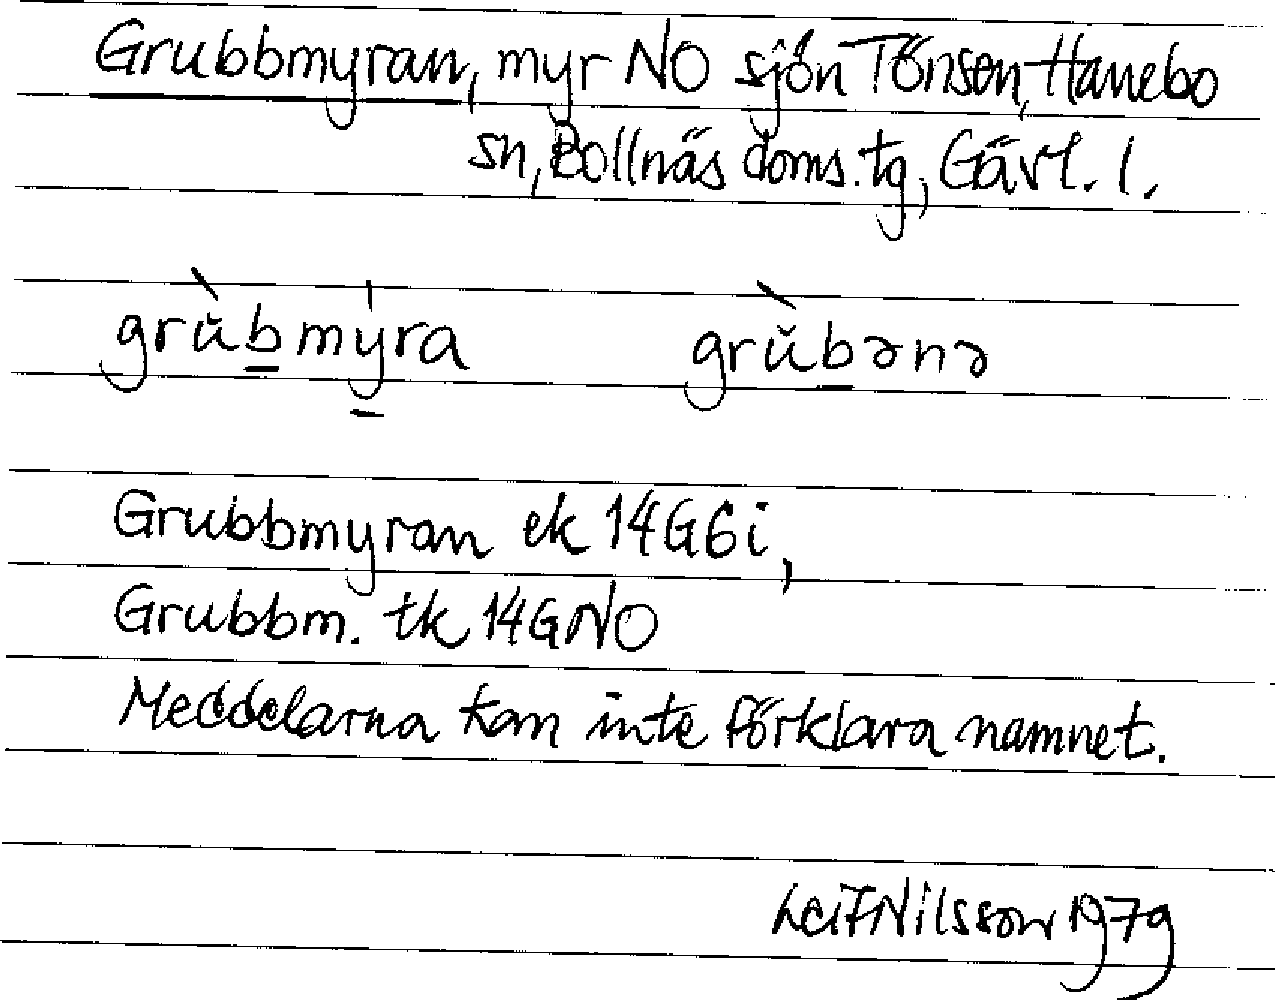 Grubbmyran, myr NO sjön Tönsen, Hanebo
sn, Bollnäs doms. tg, Gävl. l.
grŭ̀bmýra grŭ̀bənə
Grubbmyran ek 14G6i,
Grubbm. tk 14GNO
Meddelarna kan inte förklara namnet.
Leif Nilsson 1979